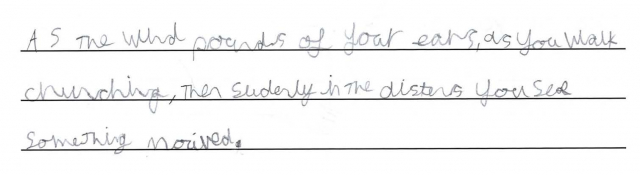 As the wind pounds of your ears, as you walk
chunching, then suderly in the disters you see
Something moived.